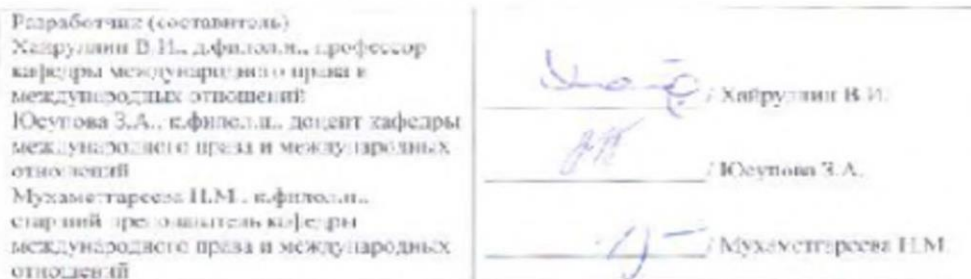 Разработчик (составитель)
Хайруллин В.И., д.филол.н., профессор
кафедры международного права и
международных отношений
/ Хайруллин В.И.
Юсупова З.А., к.филол.н., доцент кафедры
международного права и международных
отношений
/ Юсупова З.А.
Мухаметгареева Н.М., к.филол.н.,
старший преподаватель кафедры
международного права и международных
отношений
/ Мухаметгареева Н.М.